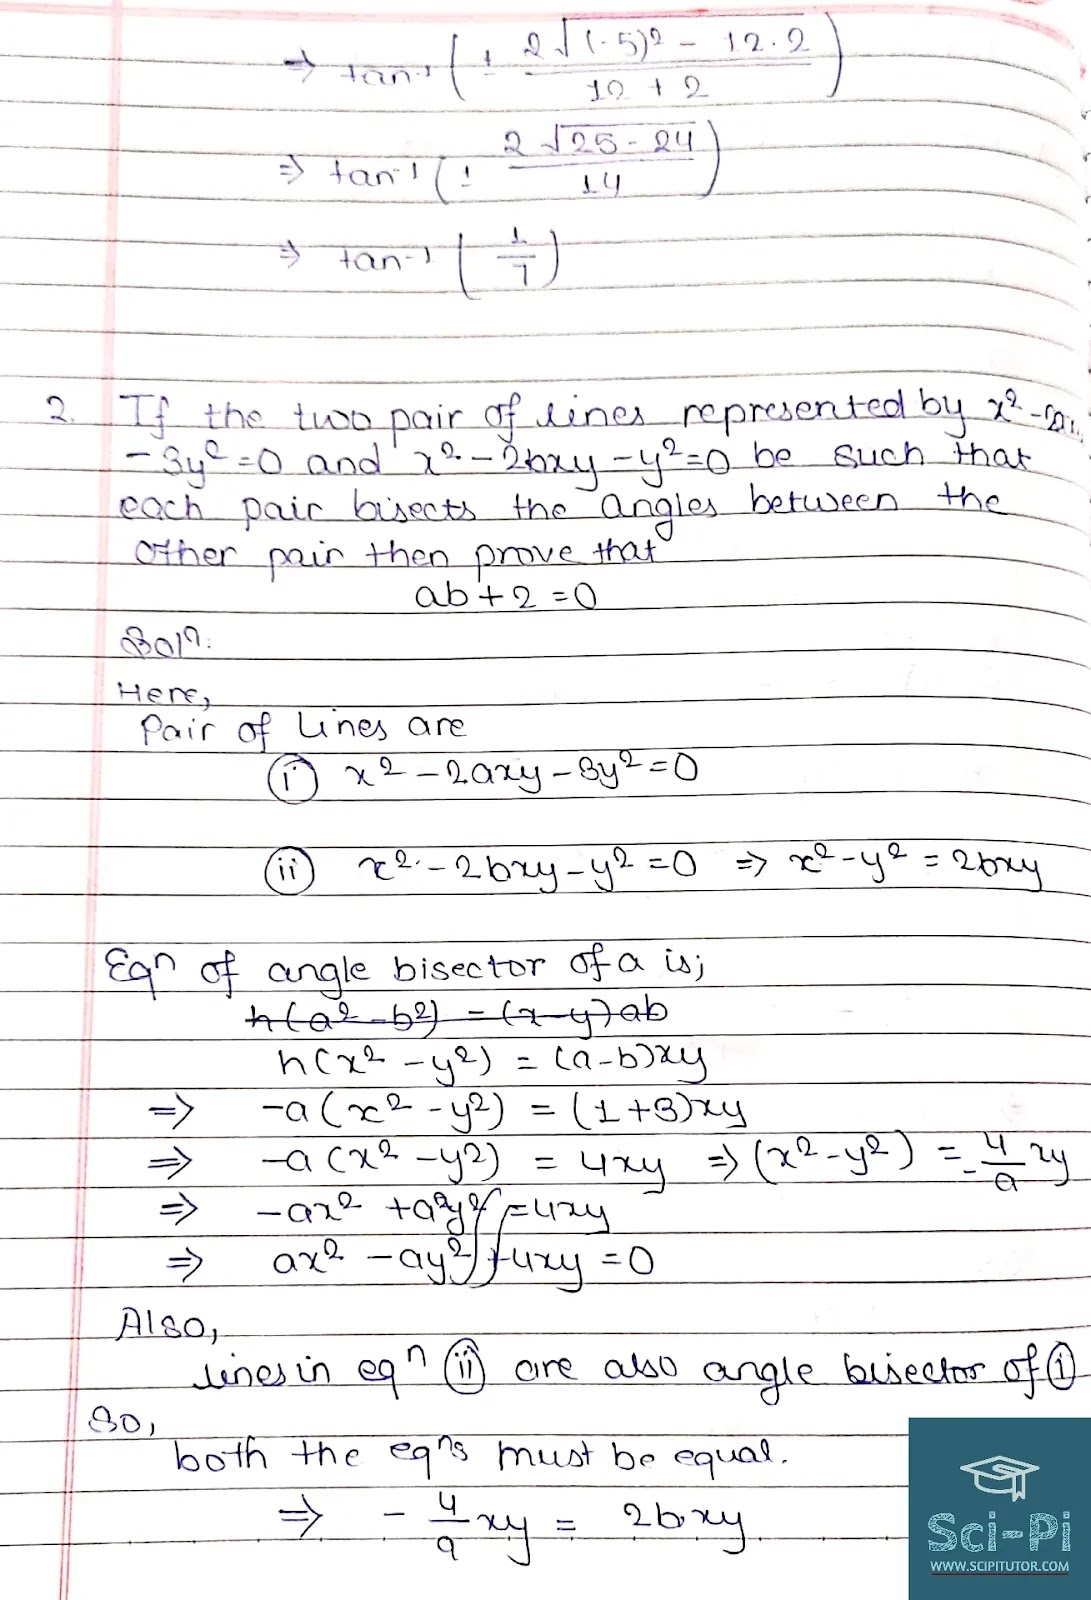 ⇒ tan⁻¹ ( ± 2√((-5)² - 12.2) / 12 + 2 )
⇒ tan⁻¹ ( ± 2√(25 - 24) / 14 )
⇒ tan⁻¹ ( 1/7 )
2. If the two pair of lines represented by x² -
- 3y² = 0 and x² - 2bxy - y² = 0 be such that
each pair bisects the angles between the
other pair then prove that
ab + 2 = 0
Solⁿ:
Here,
Pair of lines are
(i) x² - 2axy - 3y² = 0
(ii) x² - 2bxy - y² = 0 ⇒ x² - y² = 2bxy
Eqⁿ of angle bisector of a is;
h(a² - b²) = (x - y)ab
h(x² - y²) = (a - b)xy
⇒ -a(x² - y²) = (1 + 3)xy
⇒ -a(x² - y²) = 4xy ⇒ (x² - y²) = -4/a xy
⇒ -ax² + ay² = 4xy
⇒ ax² - ay² + 4xy = 0
Also,
lines in eqⁿ (ii) are also angle bisector of (i)
So,
both the eqⁿs must be equal.
⇒ - 4/a xy = 2bxy
Sci-Pi
WWW.SCIPITUTOR.COM